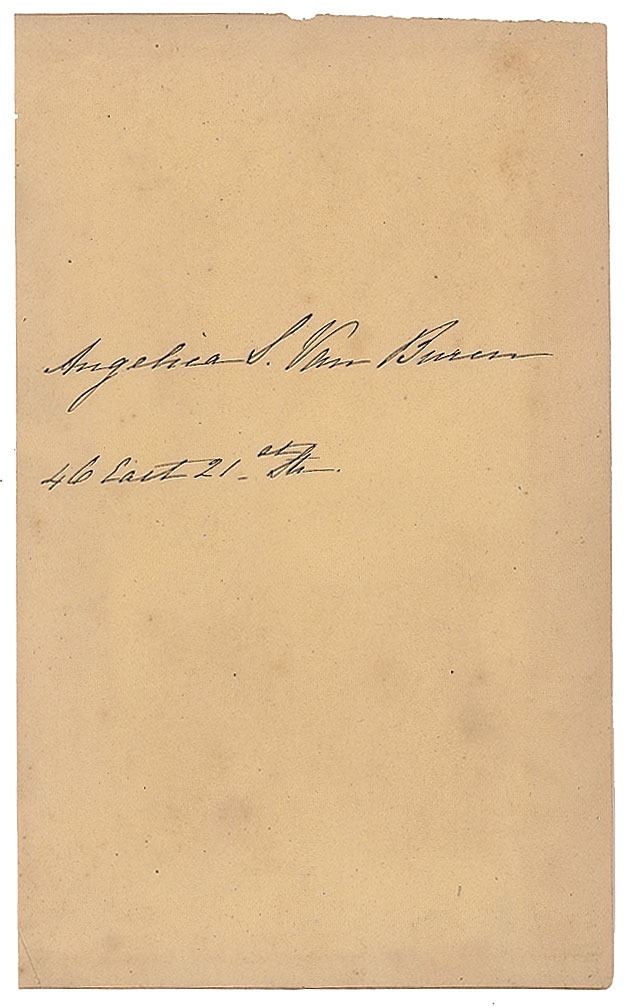 Angelica S. Van Buren
46 East 21st Str.